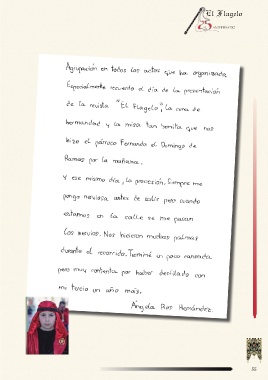 El Flagelo
25
ANIVERSARIO
Agrupación en todos los actos que ha organizado.
Especialmente recuerdo el día de la presentación
de la revista "El Flagelo", la cena de
hermandad y la misa tan bonita que nos
hizo el párroco Fernando el Domingo de
Ramos por la mañana.
Y ese mismo día, la procesión. Siempre me
pongo nerviosa antes de salir pero cuando
estamos en la calle se me pasan
los nervios. Nos hicieron muchas palmas
durante el recorrido. Terminé un poco cansada
pero muy contenta por haber desfilado con
mi tercio un año más.
Ángela Ros Hernández.